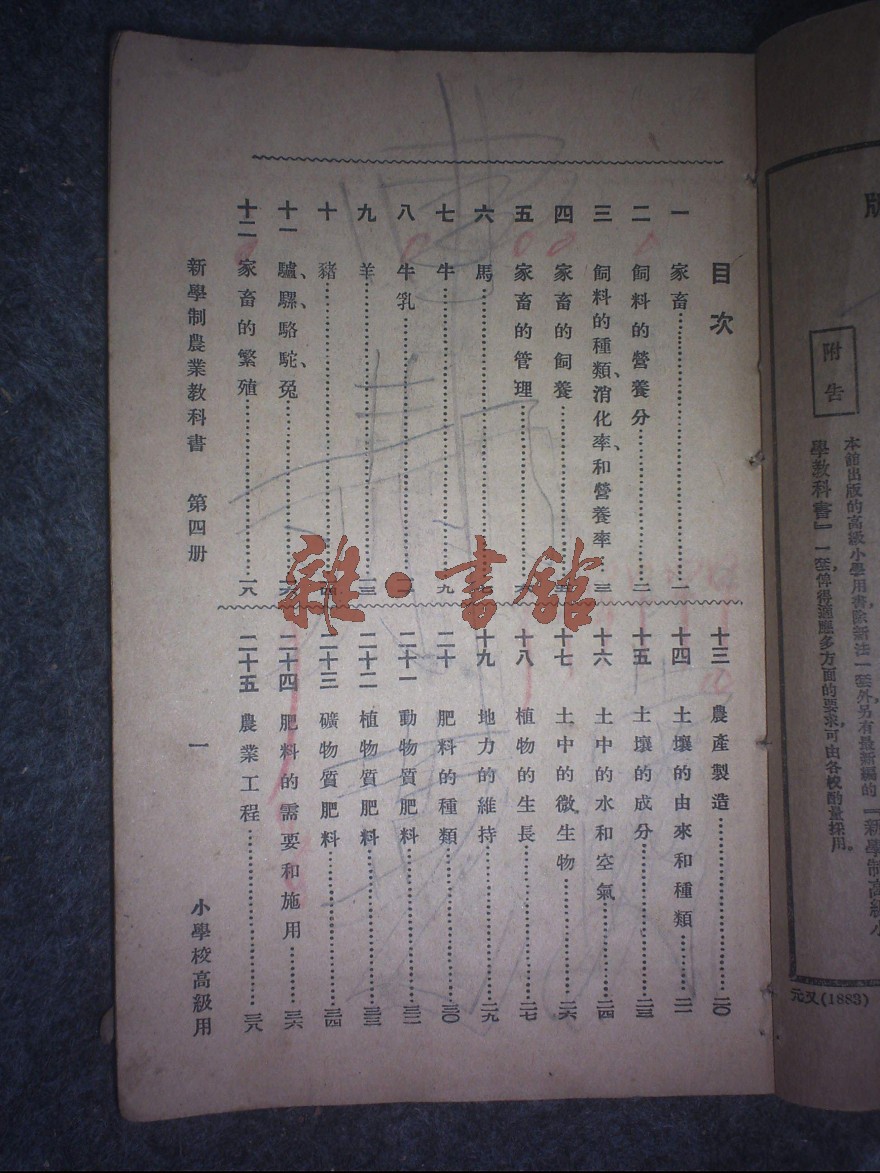 版
附告
本館出版的高級小學用書除新法一套外另有最新編的『新學制高級小
學教科書』一套俾得適應多方面的要求,可由各校酌量採用。
元又(1883)
目次
一 家畜……一
二 飼料的營養分……二
三 飼料的種類、消化率、和營養率…三
四 家畜的飼養……
五 家畜的管理……六
六 馬……
七 牛……九
八 牛乳……
九 羊……一三
十 豬……一四
十一 驢、騾、駱駝、兔……一六
十二 家畜的繁殖……一八
十三 農產製造……二〇
十四 土壤的由來和種類……二一
十五 土壤的成分……二三
十六 土中的水和空氣……二四
十七 土中的微生物……二六
十八 植物的生長……二七
十九 地力的維持……二九
二十 肥料的種類……三〇
二十一 動物質肥料……三二
二十二 植物質肥料……三三
二十三 礦物質肥料……三四
二十四 肥料的需要和施用……三六
二十五 農業工程……三八
新學制農業教科書 第四册 一 小學校高級用
雜·書館